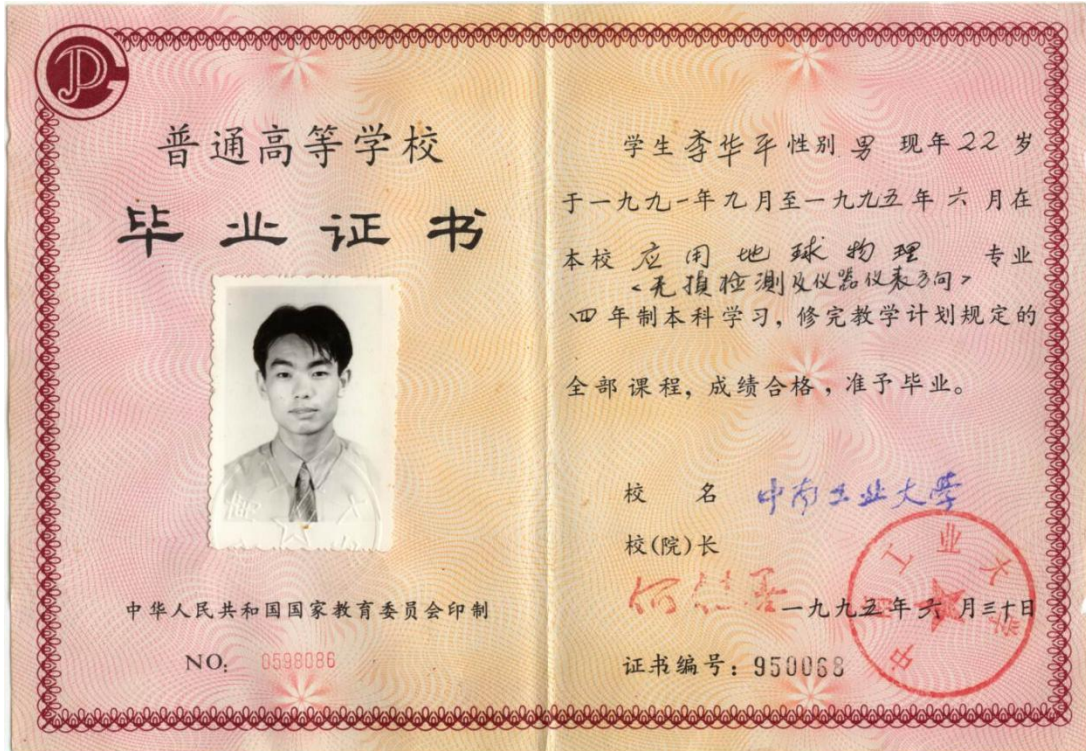 普通高等学校
毕业证书
中华人民共和国国家教育委员会印制
NO: 0598086
学生 李华平 性别 男 现年 22 岁
于一九九一年九月至一九九五年 六 月在
本校 应用地球物理 专业
<无损检测及仪器仪表方向>
四年制本科学习，修完教学计划规定的
全部课程，成绩合格，准予毕业。
校 名 中南工业大学
校(院)长
一九九五年六月三十日
中南工业大学
证书编号：950068